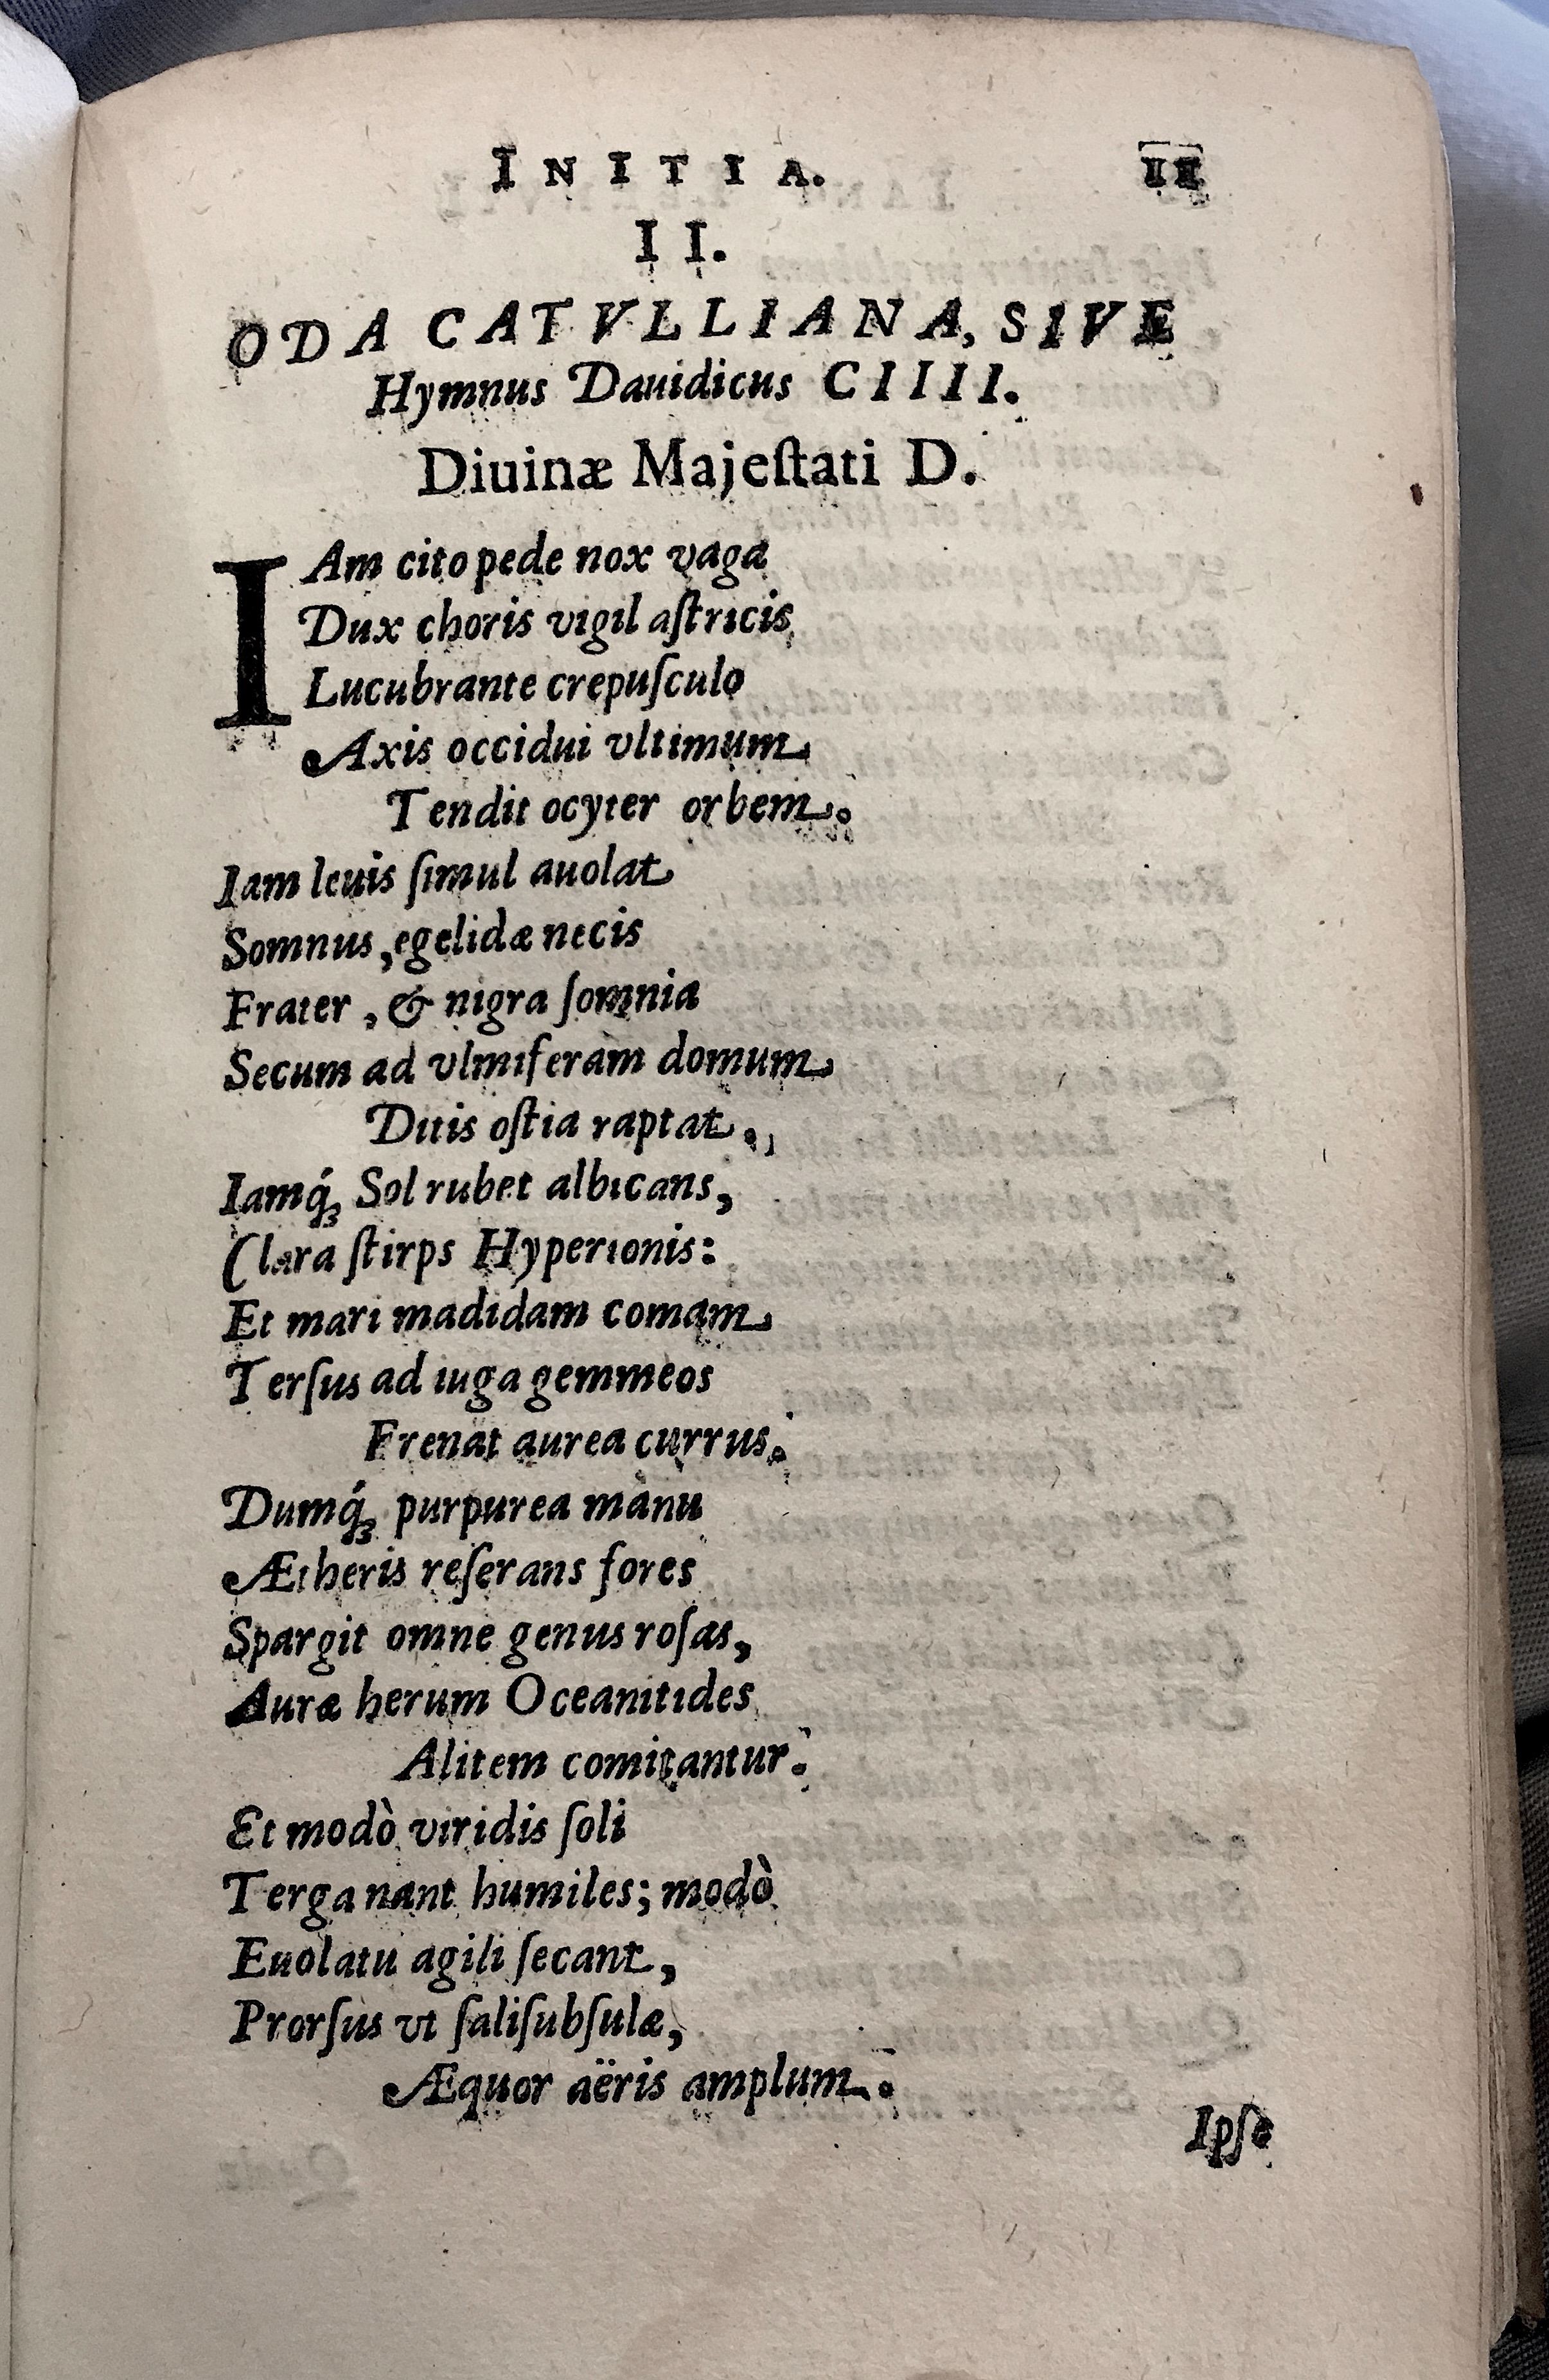 INITIA. 11
II.
ODA CATVLLIANA, SIVE
Hymnus Dauidicus CIIII.
Diuinæ Majeſtati D.
IAm cito pede nox vaga
Dux choris vigil aſtricis
Lucubrante crepuſculo
Axis occidui vltimum
Tendit ocyter orbem.
Iam leuis ſimul auolat
Somnus, egelidæ necis
Frater, & nigra ſomnia
Secum ad vlmiferam domum
Ditis oſtia raptat.
Iamq́ꝫ Sol rubet albicans,
Clara ſtirps Hyperionis:
Et mari madidam comam
Terſus ad iuga gemmeos
Frenat aurea currus.
Dumq́ꝫ purpurea manu
Ætheris reſerans fores
Spargit omne genus roſas,
Auræ herum Oceanitides
Alitem comitantur.
Et modò viridis ſoli
Terga nant humiles; modò
Euolatu agili ſecant,
Prorſus vt ſaliſubſulæ,
Æquor aëris amplum.
Ipſe